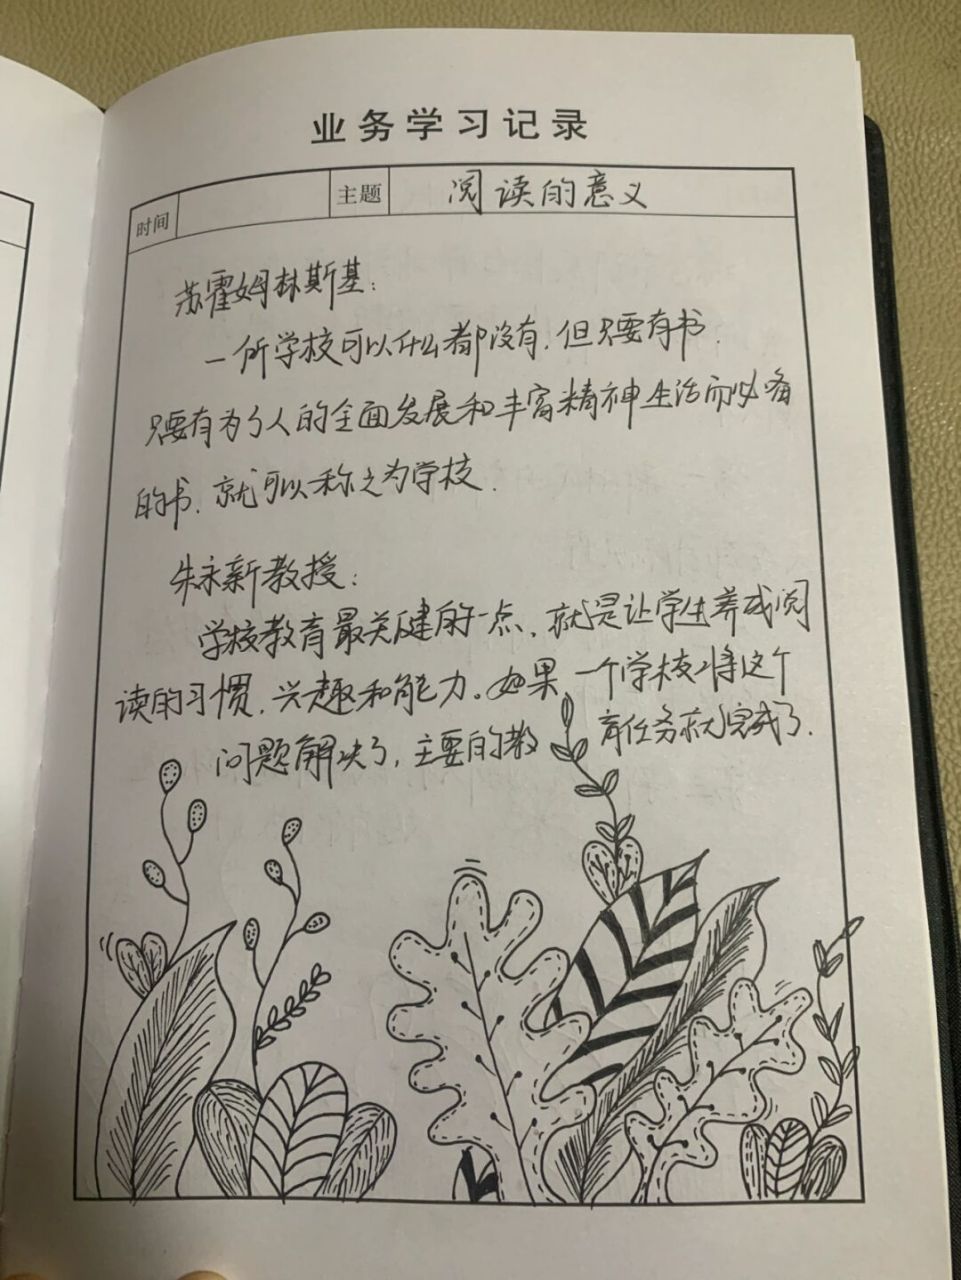 业务学习记录
时间 主题 阅读的意义
苏霍姆林斯基：
一所学校可以什么都没有，但只要有书，
只要有为了人的全面发展和丰富精神生活而必备
的书，就可以称之为学校．
朱永新教授：
学校教育最关健的一点，就是让学生养成阅
读的习惯，兴趣和能力。如果一个学校将这个
问题解决了，主要的教育任务就完成了．